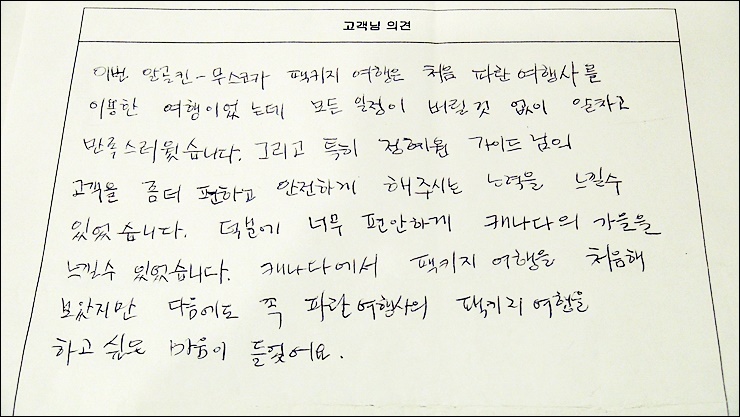 고객님 의견
이번 알곤퀸-무스코카 팩키지 여행은 처음 파란여행사를
이용한 여행이었는데 모든 일정이 버릴것 없이 알차고
만족스러웠습니다. 그리고 특히 정혜원 가이드님의
고객을 좀더 편하고 안전하게 해주시는 노력을 느낄수
있었습니다. 덕분에 너무 편안하게 캐나다의 가을을
느낄수 있었습니다. 캐나다에서 팩키지 여행을 처음해
보았지만 다음에도 꼭 파란여행사의 팩키지 여행을
하고 싶은 마음이 들었어요.